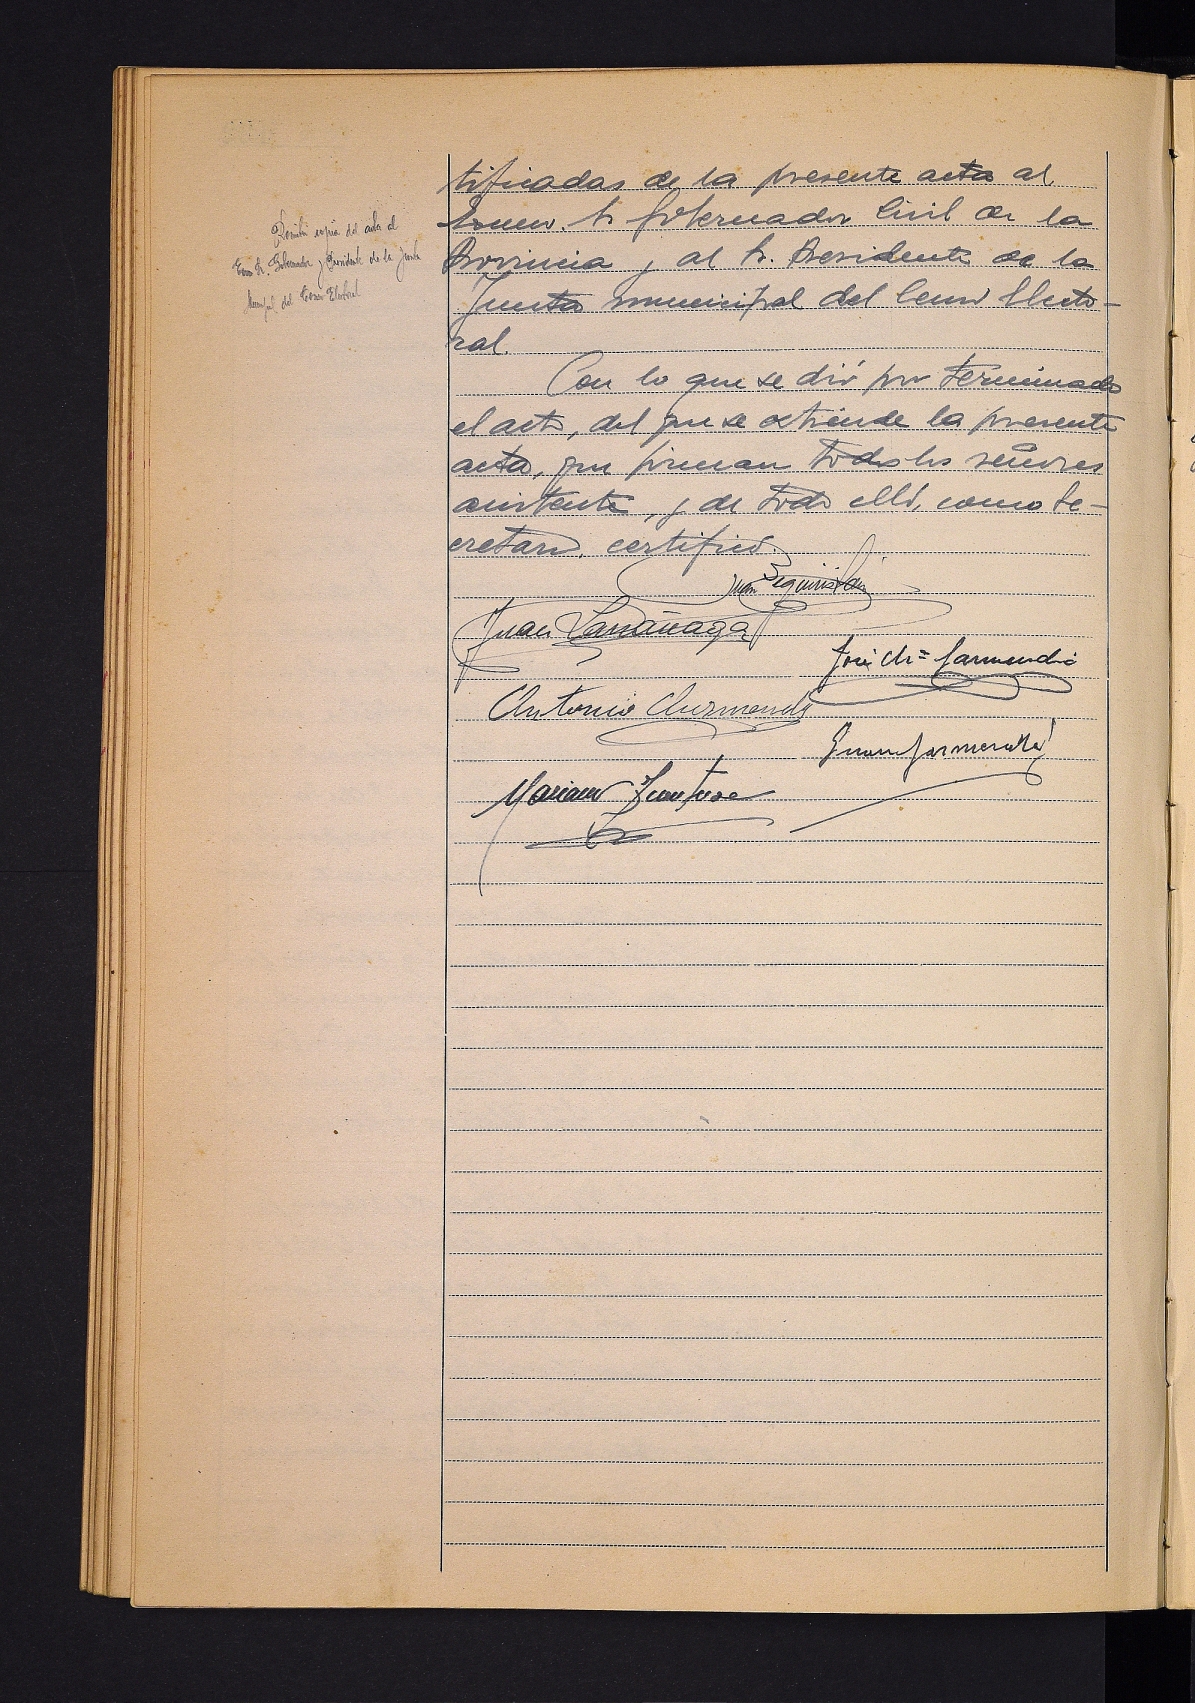 Remitir copia del acta al
Exmo Sr. Gobernador y Presidente de la Junta
Municipal del Censo Electoral
tificadas de la presente acta al
Excmo. Sr. Gobernador Civil de la
Provincia y al Sr. Presidente de la
Junta municipal del Censo Electo-
ral.
Con lo que se dió por terminado
el acto, del que se extiende la presente
acta, que firman todos los señores
asistentes, y de todo ello, como Se-
cretario, certifico.
Juan
Juan Larrañaga
José Mª Garmendia
Antonio
Juan Garmendia
Mariano